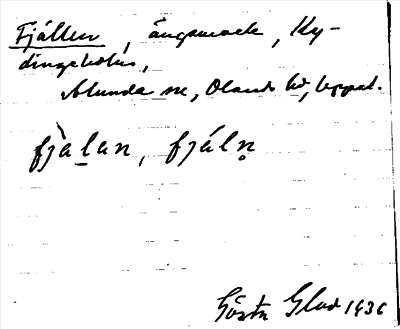 Fjällen, ängsmark, Ky-
dingeholm,
Alunda sn, Olands hd, Uppl.
fjàlan, fjáln̥
Gösta Glad 1936